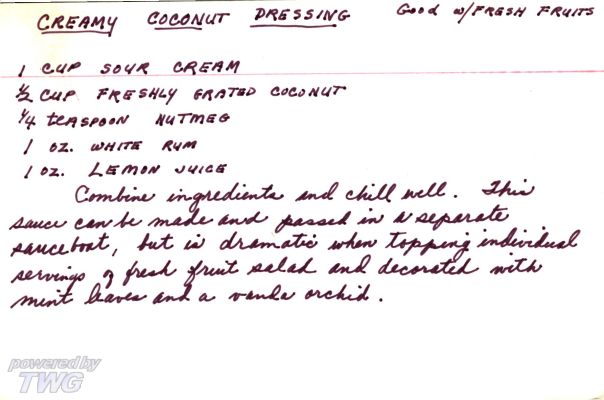 CREAMY COCONUT DRESSING Good w/FRESH FRUITS
1 CUP SOUR CREAM
1/2 CUP FRESHLY GRATED COCONUT
1/4 tEASPOON NUTMEG
1 OZ. WHITE RUM
1 OZ. LEMON JUICE
Combine ingredients and chill well. This
sauce can be made and passed in a separate
sauceboat, but is dramatic when topping individual
servings of fresh fruit salad and decorated with
mint leaves and a vanda orchid.
powered by
TWG